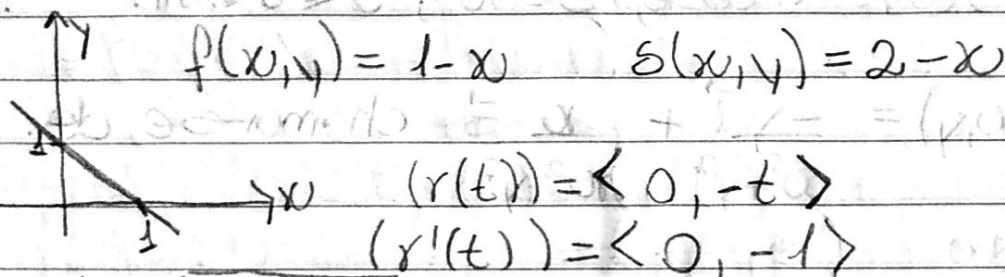 y
f(x,y) = 1-x
δ(x,y) = 2-x
1
x
1
(r(t)) = < 0, -t >
(r'(t)) = < 0, -1 >